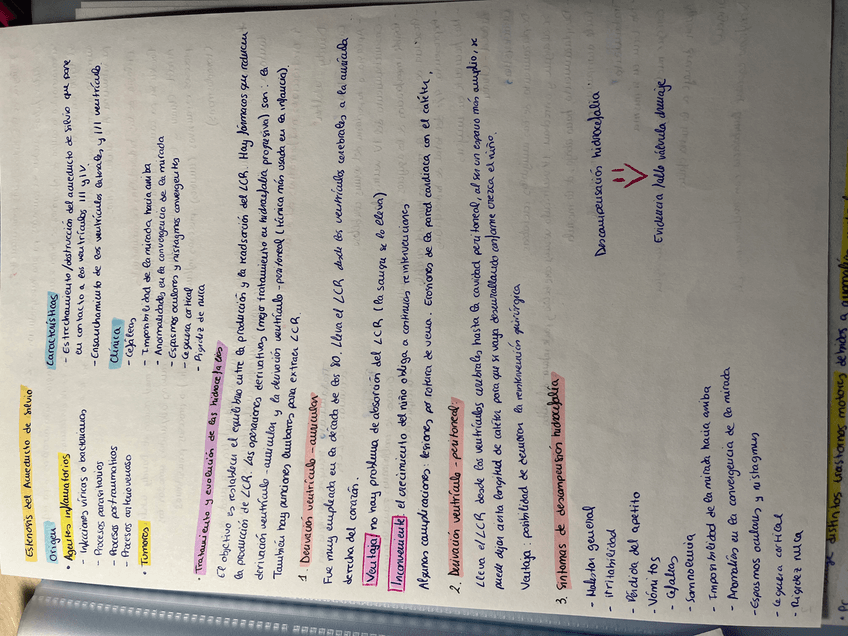 Estenosis del Acueducto de Silvio
Origen
• Agentes inflamatorios
- Infecciones víricas o bacterianas
- Procesos parasitarios
- Procesos postraumáticos
- Procesos
• Tumores
Características
- Estrechamiento/obstrucción del acueducto de Silvio que pone
en contacto a los ventrículos III y IV.
- Ensanchamiento de los ventrículos laterales y III ventrículo.
Clínica
- Cefaleas
- Imposibilidad de la mirada hacia arriba
- Anormalidades en la convergencia de la mirada
- Espasmos oculares y nistagmos convergentes
- Ceguera cortical
- Rigidez de nuca
• Tratamiento y evolución de las hidrocefalias
El objetivo es restablecer el equilibrio entre la producción y la readsorción del LCR. Hay fármacos que reducen
la producción de LCR. Las operaciones derivativas (mejor tratamiento en hidrocefalia progresiva) son: la
derivación ventrículo-auricular y la derivación ventrículo-peritoneal (técnica más usada en la infancia).
También hay punciones lumbares para extraer LCR.
1. Derivación ventrículo-auricular
Fue muy empleada en la década de los 80. Lleva el LCR desde los ventrículos cerebrales a la aurícula
derecha del corazón.
Ventaja: no hay problema de absorción del LCR (la sangre se lo lleva)
Inconveniente: el crecimiento del niño obliga a continuas reintervenciones
Algunas complicaciones: lesiones por rotura de vena. Erosiones de la pared cardiaca con el catéter.
2. Derivación ventrículo-peritoneal:
Lleva el LCR desde los ventrículos cerebrales hasta la cavidad peritoneal, al ser un espacio más amplio, se
puede dejar cierta longitud de catéter para que se vaya desenrollando conforme crezca el niño.
Ventaja: posibilidad de demorar la reintervención quirúrgica
3. Síntomas de descompensión hidrocefalia
- Malestar general
- Irritabilidad
- Pérdida del apetito
- Vómitos
- Cefaleas
- Somnolencia
- Imposibilidad de la mirada hacia arriba
- Anomalías en la convergencia de la mirada
- Espasmos oculares y nistagmus
- Ceguera cortical
- Rigidez nuca
Descompensación hidrocefalia
Evidencia fallo válvula drenaje
distintos trastornos motores debidos a
• Pr